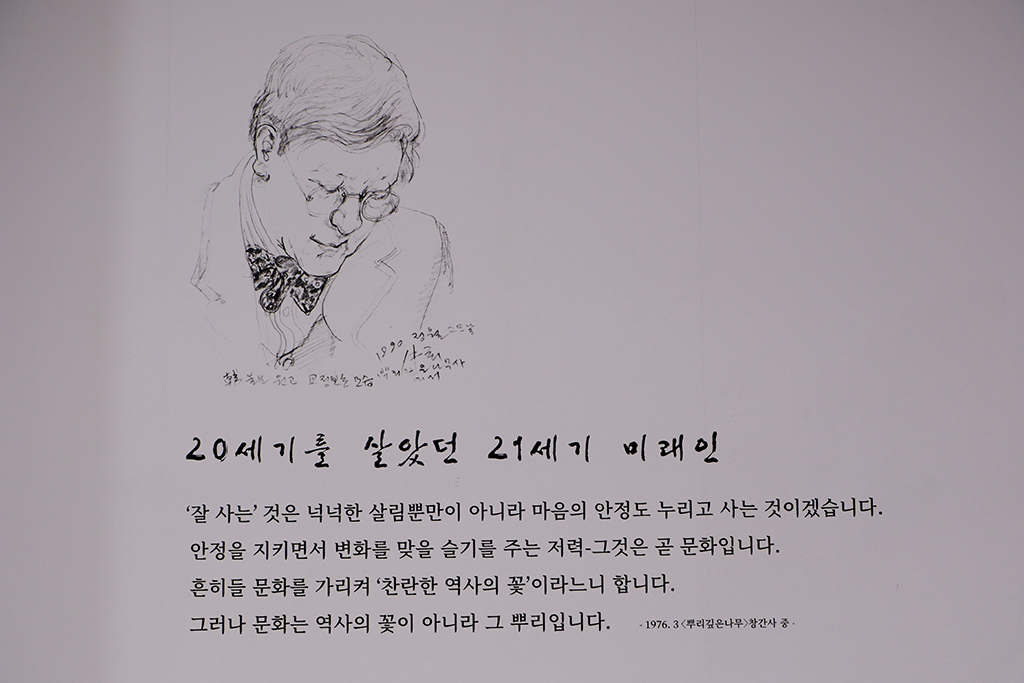 1990
20세기를 살았던 21세기 미래인
‘잘 사는’ 것은 넉넉한 살림뿐만이 아니라 마음의 안정도 누리고 사는 것이겠습니다.
안정을 지키면서 변화를 맞을 슬기를 주는 저력-그것은 곧 문화입니다.
흔히들 문화를 가리켜 ‘찬란한 역사의 꽃’이라느니 합니다.
그러나 문화는 역사의 꽃이 아니라 그 뿌리입니다. - 1976. 3 <뿌리깊은나무>창간사 중 -